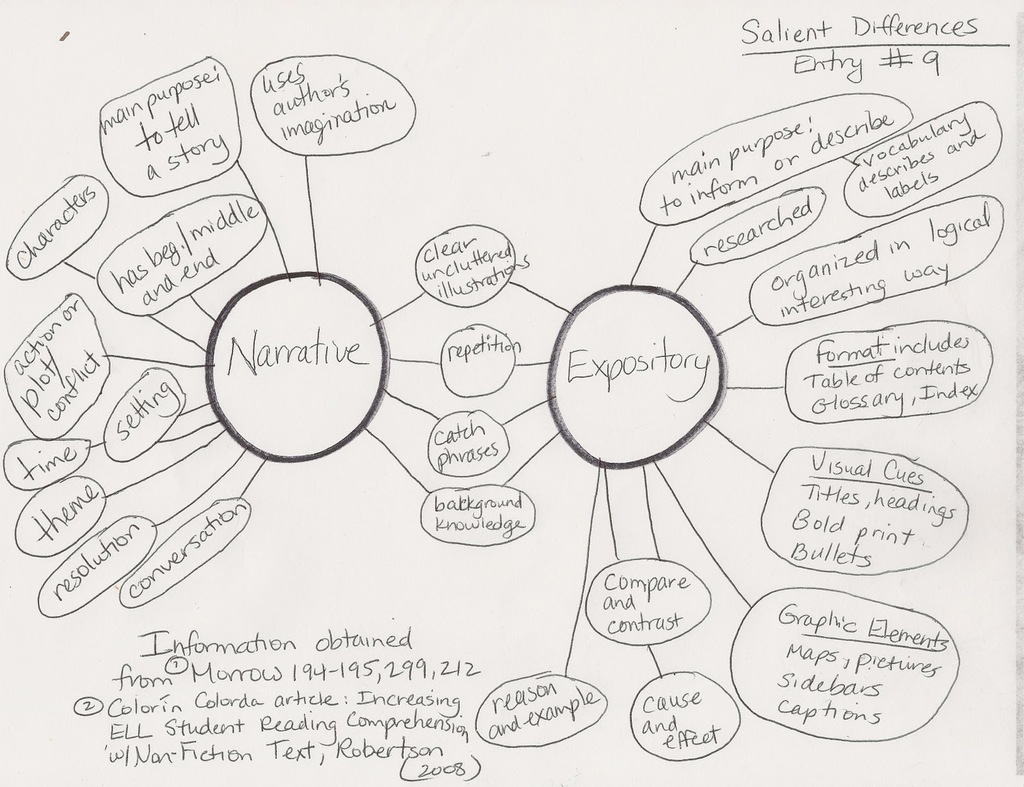 Salient Differences
Entry # 9
main purpose:
to tell
a story
uses
author's
imagination
characters
has beg./middle
and end
action or
plot/
conflict
setting
time
theme
resolution
conversation
Narrative
clear
uncluttered
illustrations
repetition
catch
phrases
background
knowledge
Expository
main purpose:
to inform or describe
vocabulary
describes and
labels
researched
organized in logical
interesting way
Format includes
Table of contents
Glossary, Index
Visual Cues
Titles, headings
Bold print
Bullets
Graphic Elements
Maps, pictures
Sidebars
Captions
Compare
and
contrast
cause
and
effect
reason
and example
Information obtained
from ① Morrow 194-195, 299, 212
② Colorín Colorda article: Increasing
ELL Student Reading Comprehension
w/ Non-Fiction Text, Robertson
(2008)